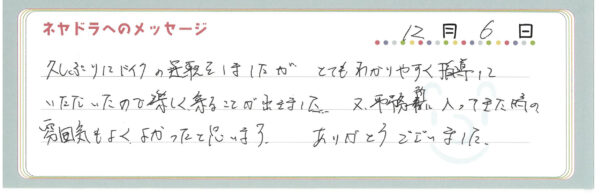 ネヤドラへのメッセージ
12月6日
久しぶりにバイクの運転をしましたが とてもわかりやすく指導して
いただいたので楽しく乗ることが出来ました 又、 に入ってきた時の
雰囲気もよくよかったと思います。 ありがとうございました。